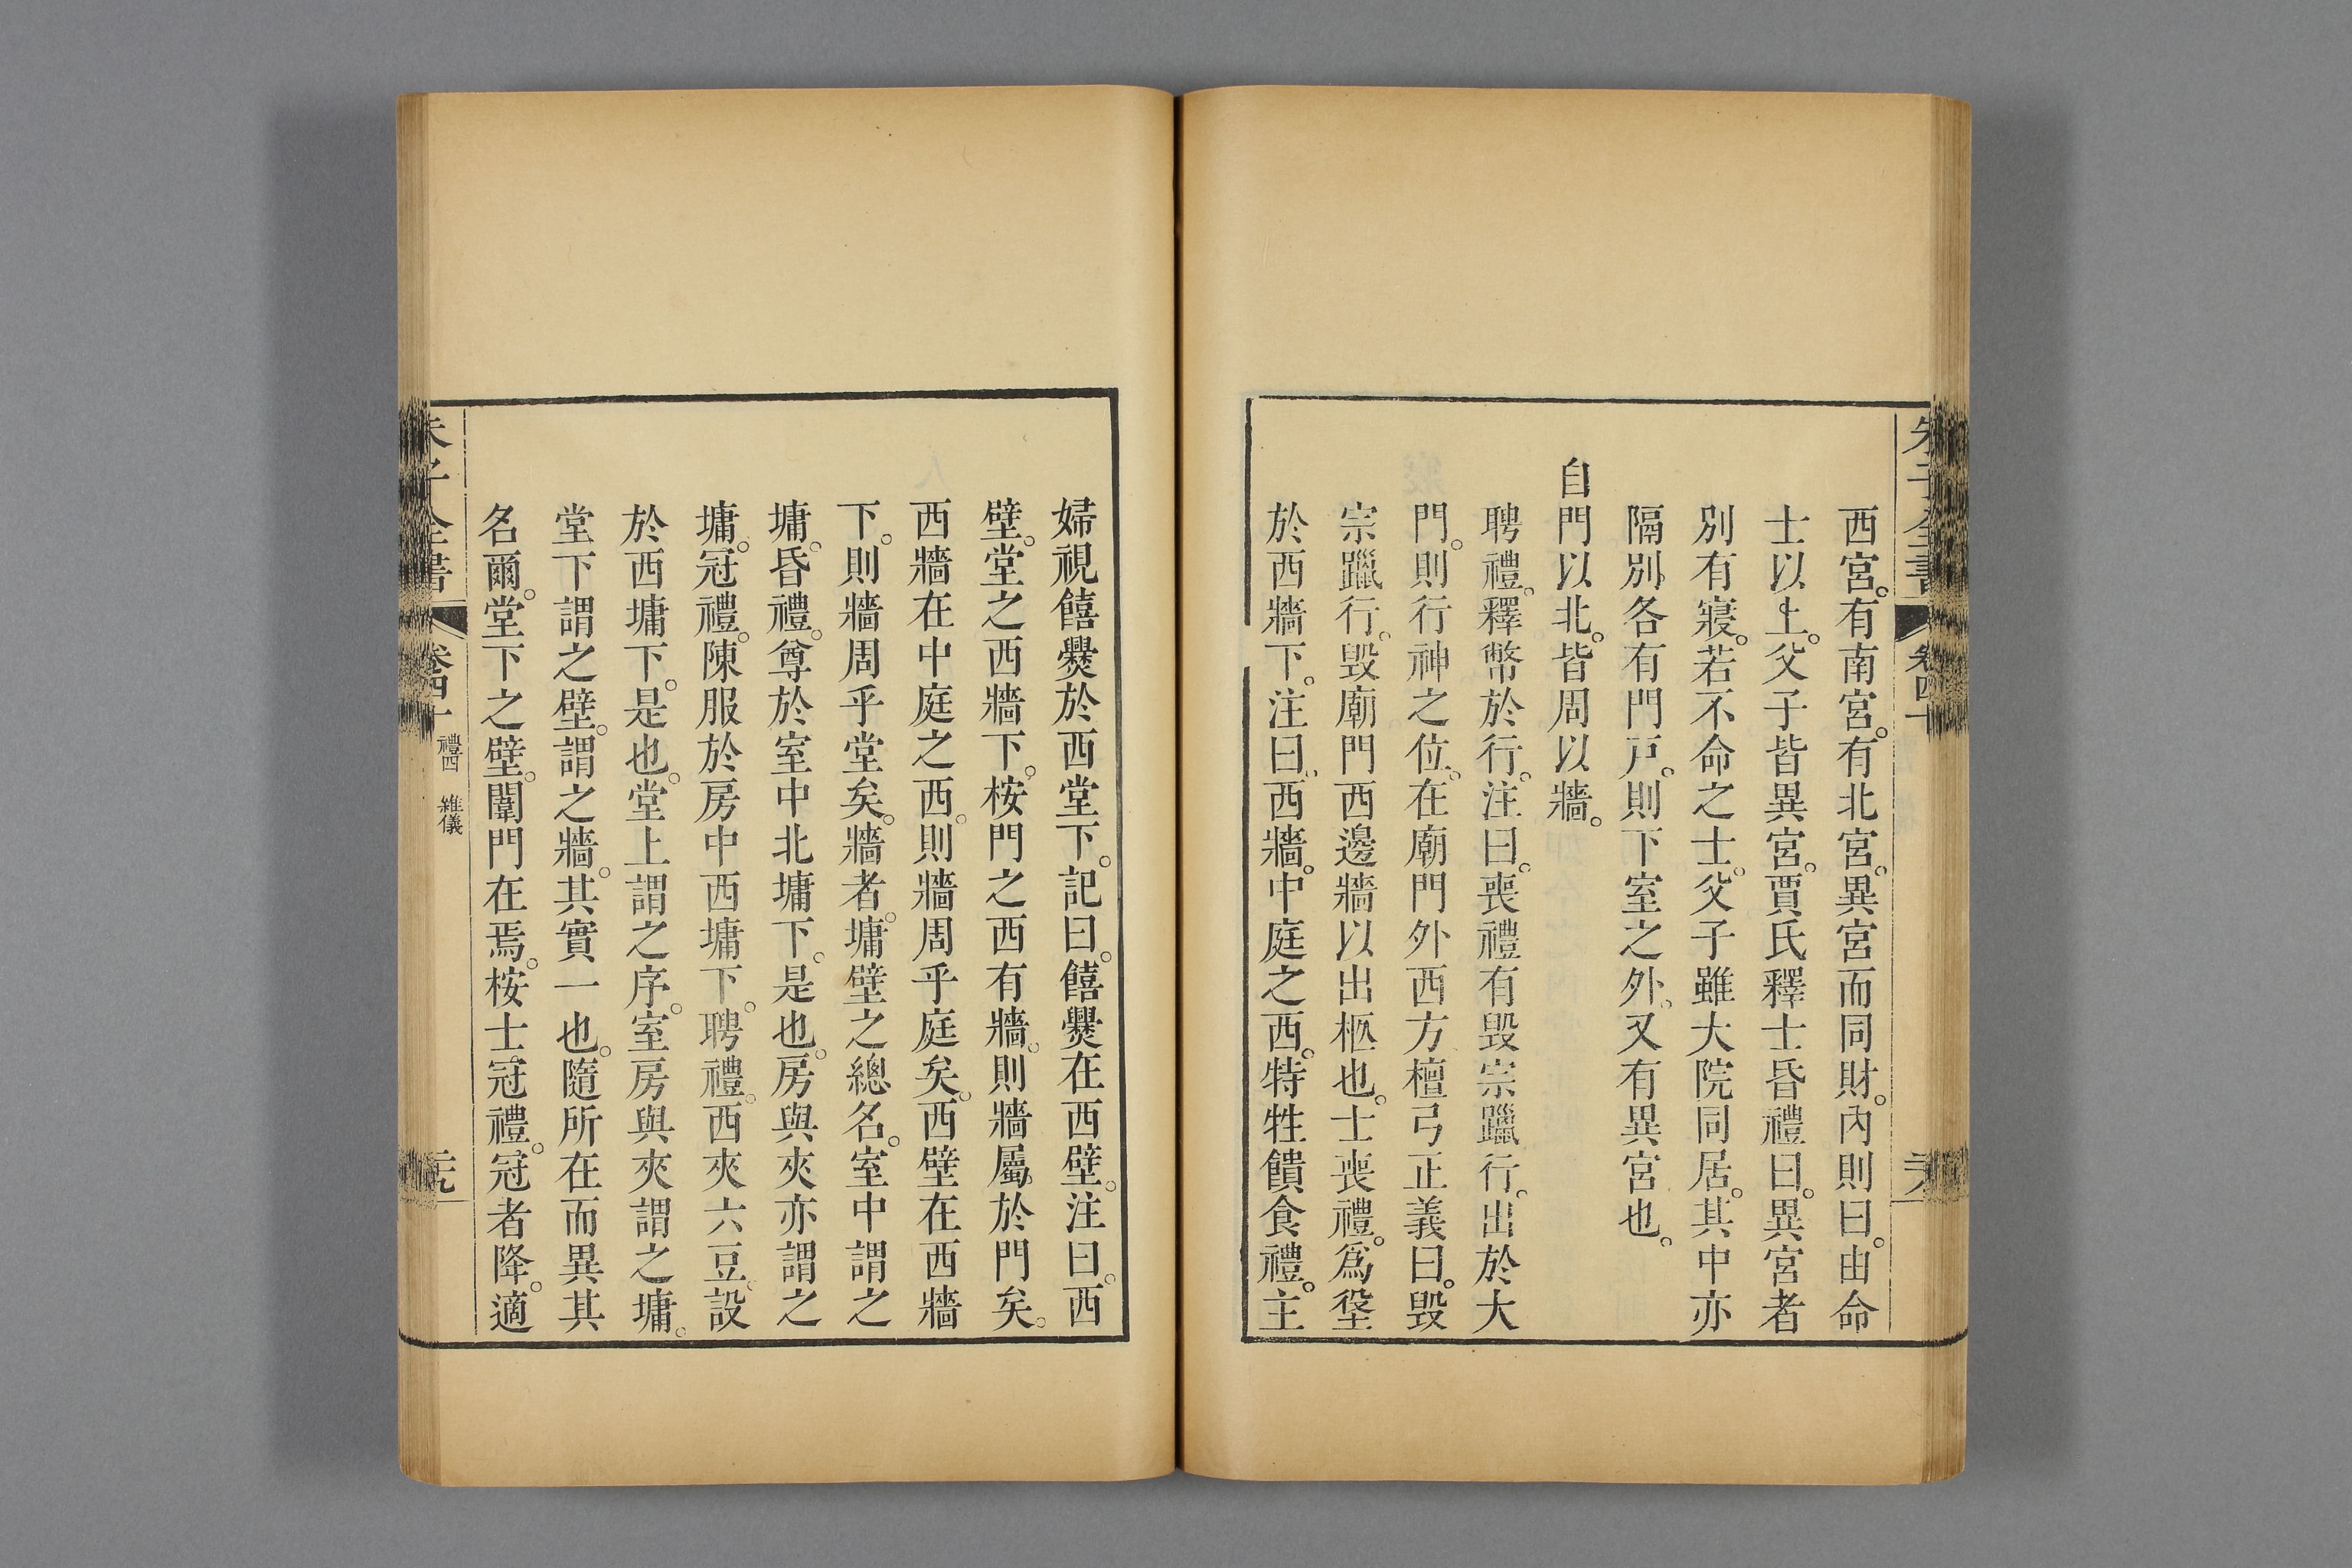 朱子全書 卷四十
西宮。有南宮。有北宮。異宮而同財。內則曰。由命
士以上。父子皆異宮。賈氏釋士昏禮曰。異宮者
別有寢。若不命之士。父子雖大院同居。其中亦
隔別。各有門戶。則下室之外。又有異宮也。
自門以北。皆周以牆。
聘禮。釋幣於行。注曰。喪禮有毀宗躐行。出於大
門。則行神之位。在廟門外西方。檀弓正義曰。毀
宗躐行。毀廟門西邊牆以出柩也。士喪禮。爲垼
於西牆下。注曰。西牆。中庭之西。特牲饋食禮。主
婦視饎爨於西堂下。記曰。饎爨在西壁。注曰。西
壁。堂之西牆下。桉門之西有牆。則牆屬於門矣。
西牆在中庭之西。則牆周乎庭矣。西壁在西牆
下。則牆周乎堂矣。牆者。墉壁之總名。室中謂之
墉。昏禮。尊於室中北墉下。是也。房與夾亦謂之
墉。冠禮。陳服於房中西墉下。聘禮。西夾六豆。設
於西墉下。是也。堂上謂之序。室房與夾謂之墉。
堂下謂之壁。謂之牆。其實一也。隨所在而異其
名爾。堂下之壁。闈門在焉。桉士冠禮。冠者降。適
朱子全書 卷四十 禮四 雜儀 二十九